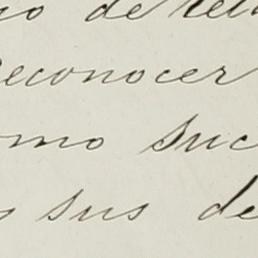 de
reconocer
omo suc
sus de